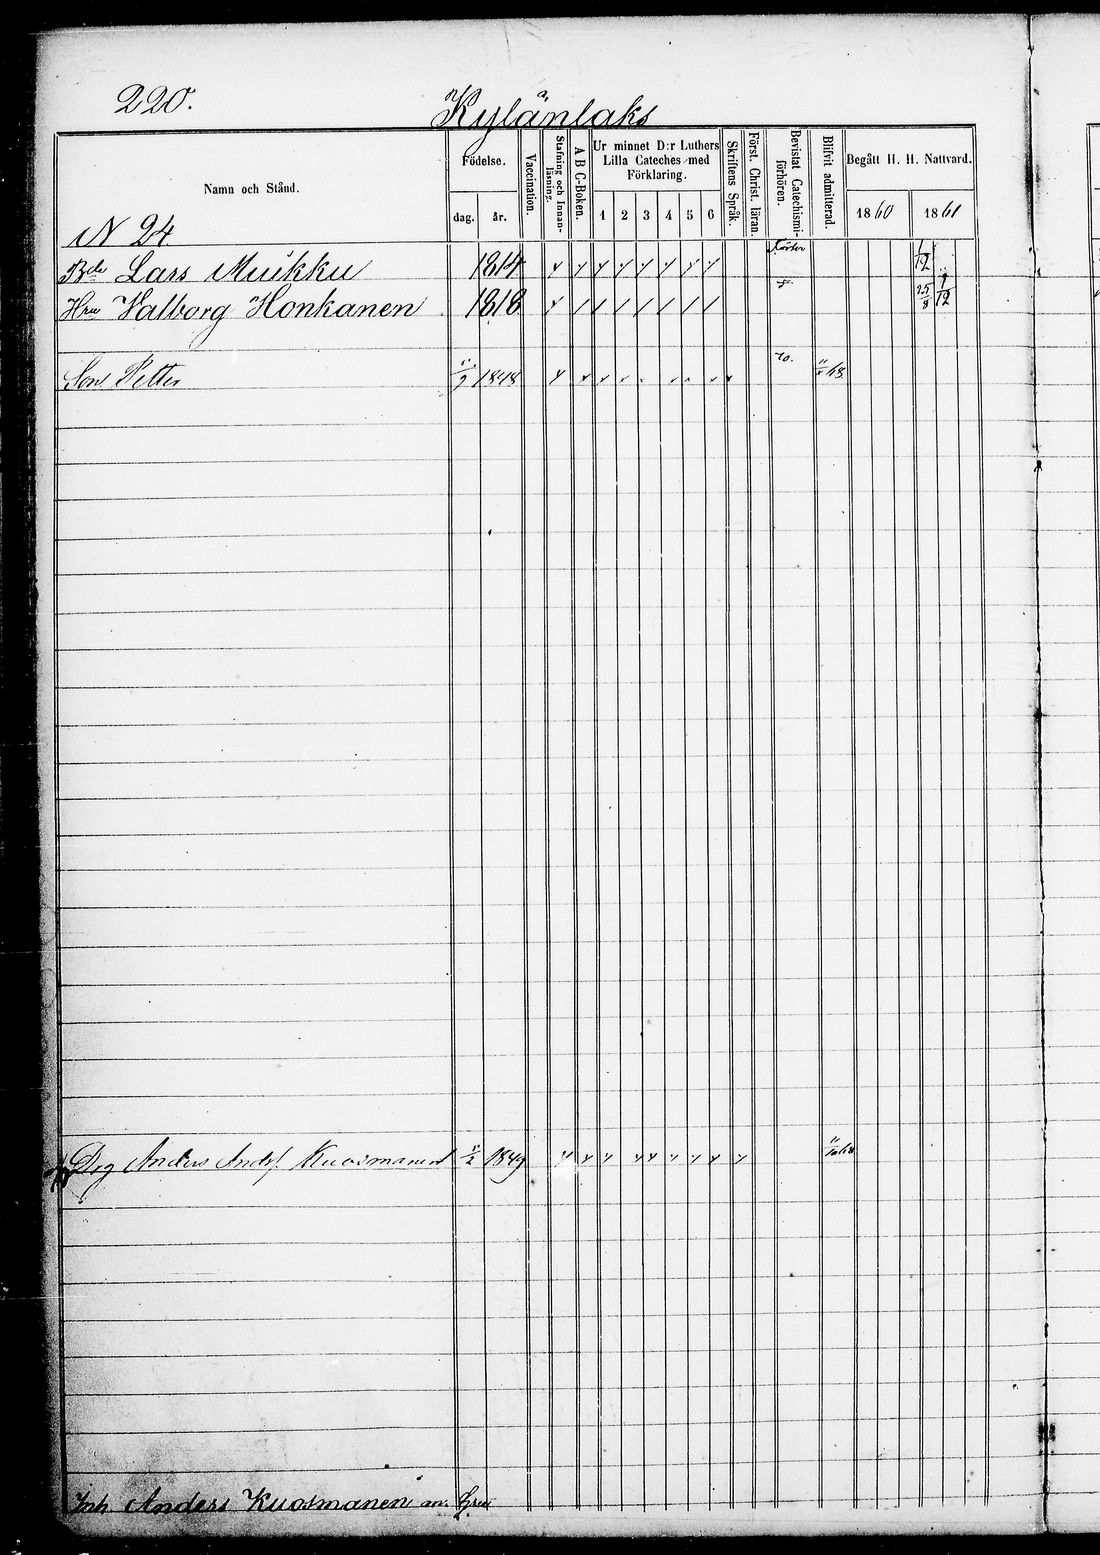 220.
Kylänlaks
Namn och Stånd.
Födelse.
dag.
år.
Vaccination.
Stafning och Innanläsning.
A B C-Boken.
Ur minnet D:r Luthers Lilla Cateches med Förklaring.
1 2 3 4 5 6
Skriftens Språk.
Först. Christ. läran.
Bevistat Catechismi-förhören.
Blifvit admitterad.
Begått H. H. Nattvard.
1860
1861
N 24
Bde Lars Muikku 1814 1/12
Hru Valborg Honkanen 1818 25/8 1/12
Son Petter 1848
Drg Anders Andsf. Kuosmanen 1849
Inh. Anders Kuosmanen m. Hru